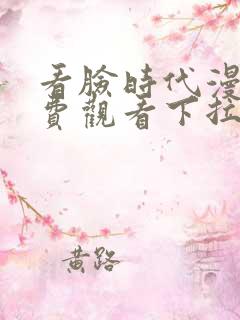 看脸時代漫
費觀看下拉
黄路